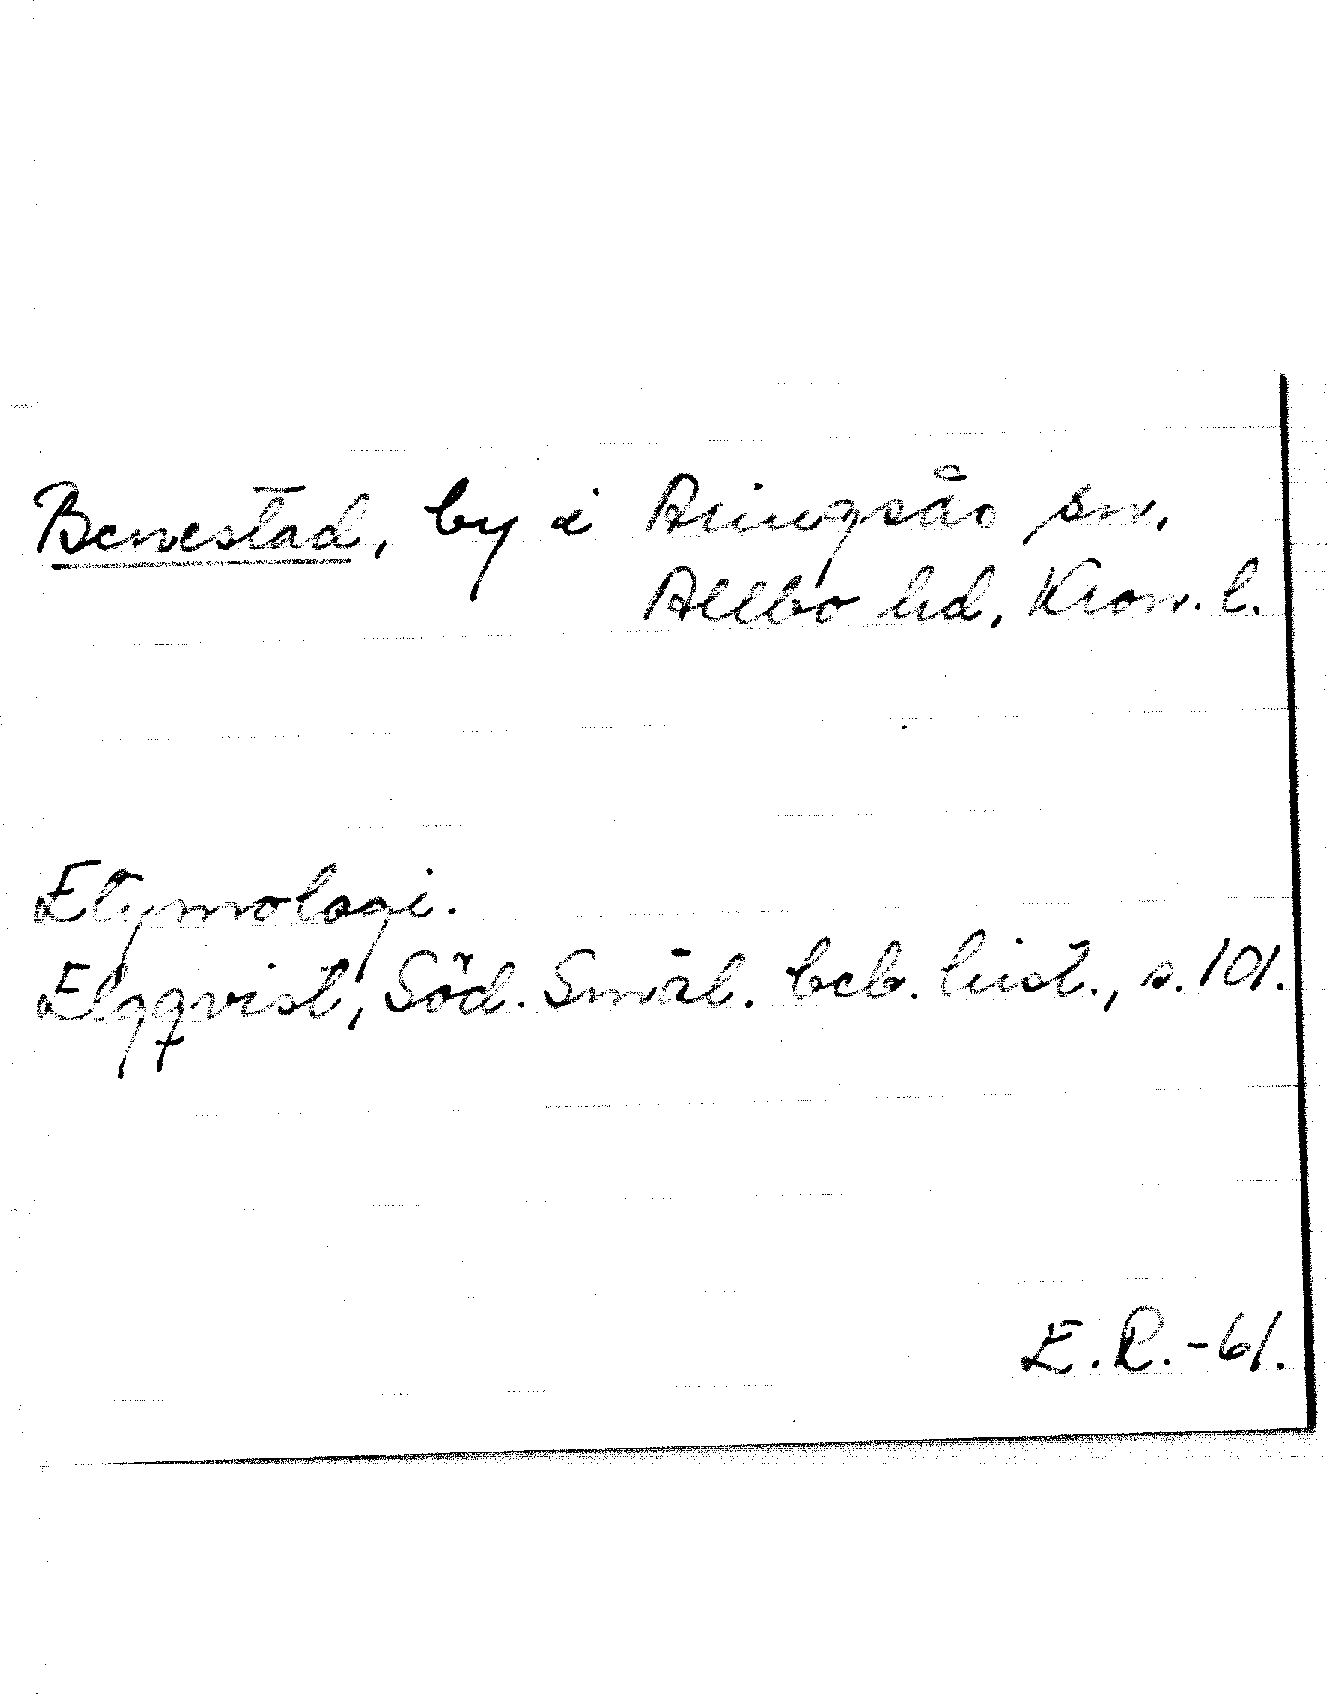 Benestad, by i Aringsås sn.
Allbo hd, Kron. l.
Etymologi.
Elgqvist, Söd. Smål. beb. hist., s. 101.
E. R. -61.